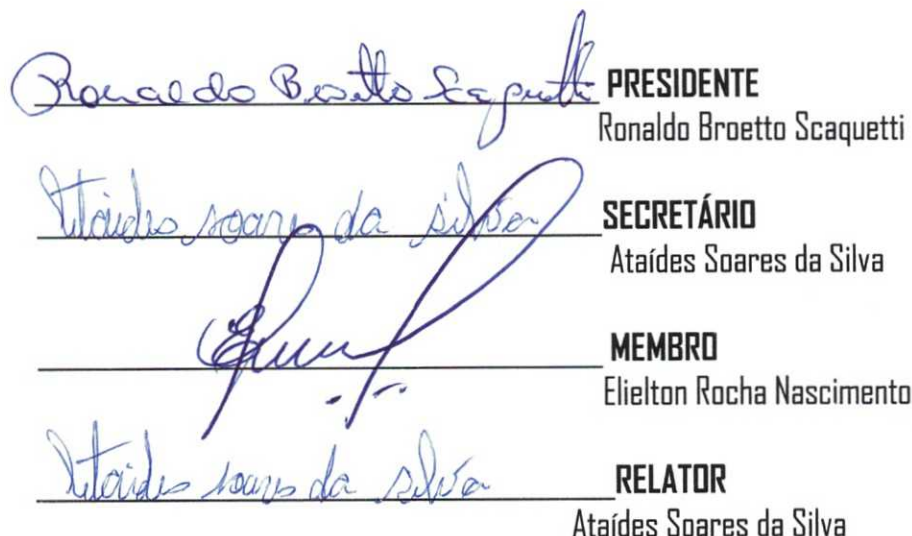 Ronaldo Broetto Scaquetti PRESIDENTE
Ronaldo Broetto Scaquetti
Ataídes soares da silva SECRETÁRIO
Ataídes Soares da Silva
MEMBRO
Elielton Rocha Nascimento
Ataídes soares da silva RELATOR
Ataídes Soares da Silva